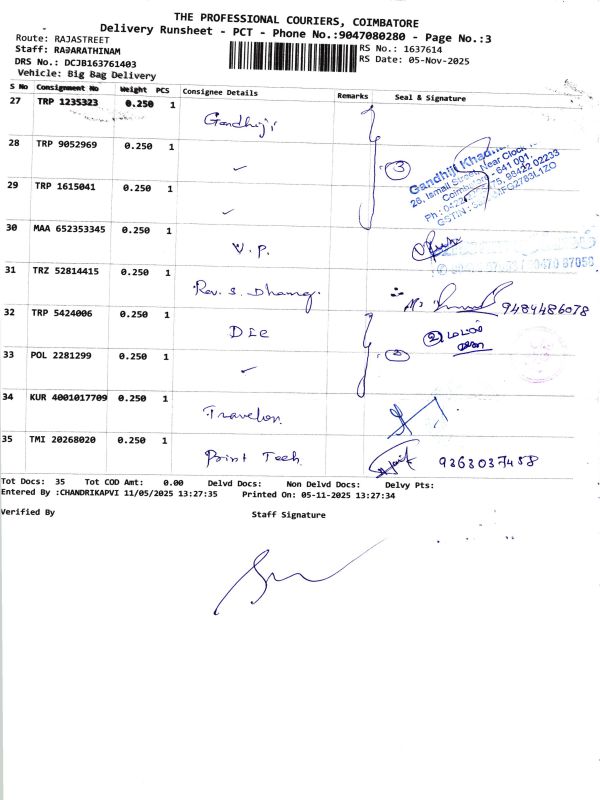 THE PROFESSIONAL COURIERS, COIMBATORE
Delivery Runsheet - PCT - Phone No.:9047080280 - Page No.:3
Route: RAJASTREET
Staff: RAJARATHINAM
RS No.: 1637614
DRS No.: DCJB163761403
RS Date: 05-Nov-2025
Vehicle: Big Bag Delivery
S No Consignment No Weight PCS Consignee Details Remarks Seal & Signature
27 TRP 1235323 0.250 1 Gandhiji
28 TRP 9052969 0.250 1 ✓ 3
Gandhiji Khadi
26, Ismail Street, Near Clock
Coimbatore - 641 001.
98422 02233
29 TRP 1615041 0.250 1 ✓
30 MAA 652353345 0.250 1 V.P.
31 TRZ 52814415 0.250 1 Rev. S. Dhamg. 9484486078
32 TRP 5424006 0.250 1 DLC
33 POL 2281299 0.250 1 ✓ 2
34 KUR 4001017709 0.250 1 Travelon
35 TMI 20268020 0.250 1 Print Tech. 9363037458
Tot Docs: 35 Tot COD Amt: 0.00 Delvd Docs: Non Delvd Docs: Delvy Pts:
Entered By :CHANDRIKAPVI 11/05/2025 13:27:35 Printed On: 05-11-2025 13:27:34
Verified By Staff Signature